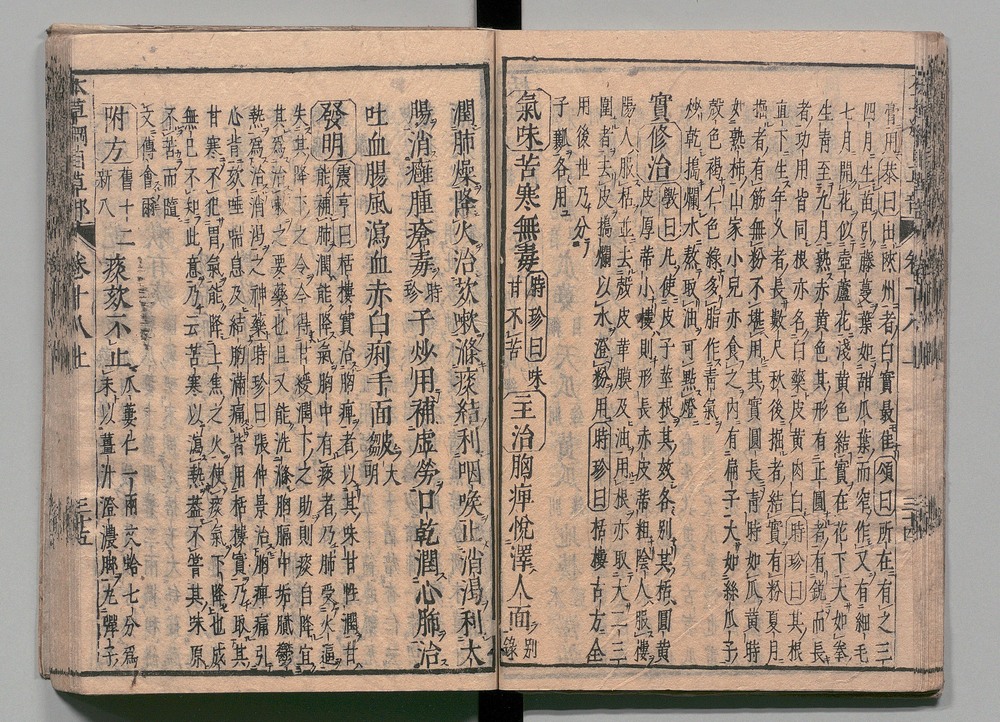 膏用恭曰出陝州者白實最佳頌曰所在有之三
四月生苗引藤蔓葉如甜瓜葉而窄作叉有細毛
七月開花似壺蘆花淺黃色結實在花下大如拳
生青至九月熟赤黃色其形有正圓者有銳而長
者功用皆同根亦名白藥皮黃肉白時珍曰其根
直下生年久者長數尺秋後掘者結實有粉夏月
掘者有筋無粉不堪用其實圓長青時如瓜黃時
如熟柿山家小兒亦食之內有扁子大如絲瓜子
殼色褐仁色綠多脂作青氣
炒乾搗爛水熬取油可點燈
實修治斅曰凡使皮子莖根其效各別其栝圓黃
皮厚蒂小樓則形長赤皮蒂粗陰人服樓
陽人服栝並去殼皮革膜及油用根亦取大二三
圍者去皮搗爛以水澄粉用時珍曰栝樓古方全
用後世乃分
子瓤各用
氣味苦寒無毒時珍曰味甘不苦主治胸痺悅澤人面別錄
潤肺燥降火治欬嗽滌痰結利咽喉止消渴利大
腸消癰腫瘡毒時珍子炒用補虛勞口乾潤心肺治
吐血腸風瀉血赤白痢手面皺大明
發明震亨曰栝樓實治胸痺者以其味甘性潤甘
能補肺潤能降氣胸中有痰者乃肺受火逼
失其降下之令今得甘緩潤下之助則痰自降宜
其爲治嗽之要藥也且又能洗滌胸膈中垢膩鬱
熱爲治消渴之神藥時珍曰張仲景治胸痺痛引
心背欬唾喘息及結胸滿痛皆用栝樓實乃取其
甘寒不犯胃氣能降上焦之火使痰氣下降也成
無己不知此意乃云苦寒以瀉熱蓋不嘗其味原
不苦而隨
文傅會爾
附方舊十二新八痰欬不止瓜蔞仁一兩文蛤七分爲末以薑汁澄濃脚丸彈子
本草綱目草部 卷十八上 三十五